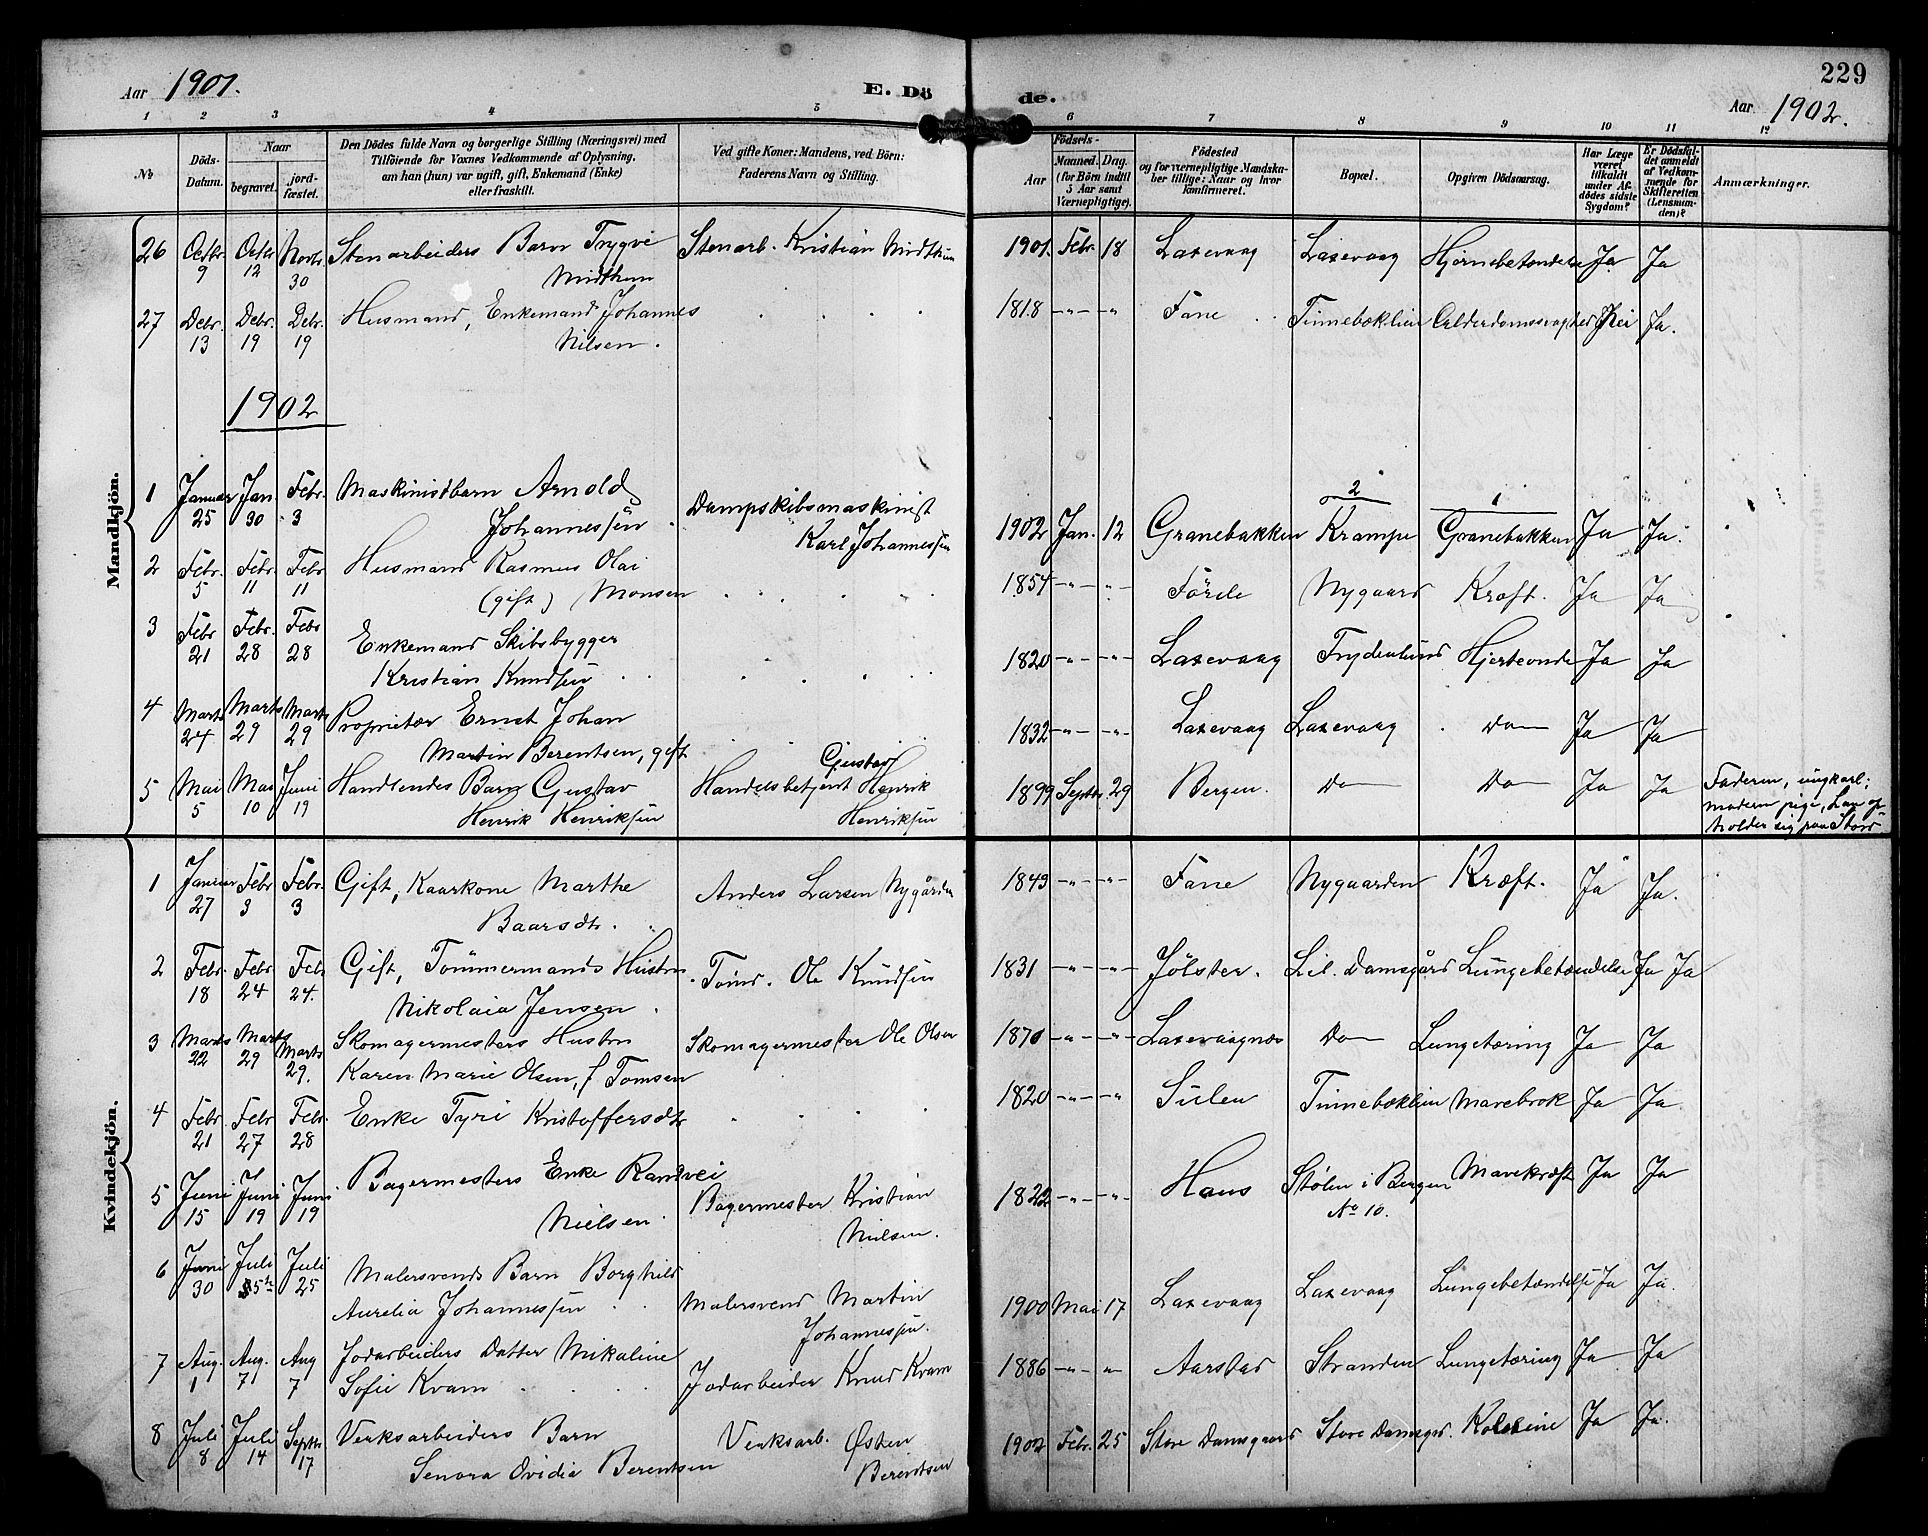 229
Aar 1901. E. Dö de. Aar 1902.
1 2 3 4 5 6 7 8 9 10 11 12
No Döds-Datum. Naar begravet. jordfæstet. Den Dödes fulde Navn og borgerlige Stilling (Næringsvei) med Tilföiende for Voxnes Vedkommende af Oplysning, om han (hun) var ugift, gift, Enkemand (Enke) eller fraskilt. Ved gifte Koner: Mandens, ved Börn: Faderens Navn og Stilling. Födsels- Aar Maaned. Dag. (for Börn indtil 5 Aar samt Værnepligtige). Födested og for værnepligtige Mandskaber tillige: Naar og hvor konfirmeret. Bopæl. Opgiven Dödsaarsag. Har Læge været tilkaldt under Afdödes sidste Sygdom? Er Dödsfaldet anmeldt af Vedkommende for Skifteretten (Lensmanden)? Anmærkninger.
Mandkjön.
26 Octbr. 9 Octbr. 12 Novbr. 30 Stenarbeiders Barn Trygve Midthun Stenarb. Kristian Midthun 1901. Febr. 18 Laxevaag Laxevaag Hjernebetændelse Ja Ja
27 Debr. 13 Debr. 19 Debr. 19 Husmand, Enkemand Johannes Nilsen. 1818 -"- " Fane Tinnebæklien Alderdomssvaghed Nei Ja.
1902
1 Januar 25 Jan. 30 Febr. 3 Maskinistbarn Arnold Johannessen Dampskibsmaskinist Karl Johannessen 1902 Jan. 12 Granebakken 2 Krampe 1 Granebakken Ja Ja.
2 Febr. 5 Febr. 11 Febr 11 Husmand Rasmus Olai (gift) Monsen 1854 -"- -"- Förde Nygaard Kræft. Ja Ja
3 Febr 21 Febr. 28 Febr 28 Enkemand Skibsbygger Kristian Knudsen 1820 -"- -"- Laxevaag Frydenlund Hjerteonde Ja Ja
4 Marts 24 Marts 29 Marts 29 Proprietær Ernst Johan Martin Berentsen, gift 1832 -"- -"- Laxevaag Laxevaag Do Ja Ja
5 Mai 5 Mai 10 Juni 19 Handlendes Barn Gustav Henrik Henriksen Handelsbetjent Gustav Henrik Henriksen 1899 Septbr. 29 Bergen. Do Do Ja Ja Faderen, ungkarl; moderen pige, han opholder sig paa Stord
Kvindekjön.
1 Januar 27 Febr 3 Febr. 3 Gift, Kaarkone Marthe Baarsdtr. Anders Larsen Nygården 1843 -"- -"- Fane Nygaarden Kræft. Ja Ja.
2 Febr. 18 Febr 24 Febr 24. Gift, Tömmermands Hustru Nikolaia Jensen Tömr. Ole Knudsen 1831 -"- -"- Jölster. Lil. Damsgård Lungebetændelse Ja Ja
3 Marts 22 Marts 29 Marts 29. Skomagermesters Hustru Karen Marie Olsen, f Tomsen Skomagermester Ole Olsen 1870 -"- -"- Laxevaagnæs Do Lungetæring Ja Ja
4 Febr 21 Febr 27 Febr. 28 Enke Tyri Kristoffersdtr 1820 -"- -"- Sulen Tinnebæklien Mavebrok Ja Ja
5 Juni 15 Juni 19 Juni 19 Bagermesters Enke Randvei Nielsen Bagermester Kristian Nielsen. 1822 -"- -"- Haus Stølen i Bergen No 10. Mavekræft Ja Ja
6 Juni 30 Juli 5te Juli 25 Malersvends Barn Borghild Aurelia Johannessen Malersvend Martin Johannessen. 1900 Mai 17 Laxevaag Laxevaag Lungebetændelse Ja Ja.
7 Aug. 1 Aug. 7 Aug 7 Jodarbeiders Datter Mikaline Sofie Kvam Jodarbeider Knud Kvam 1886 -"- " Aarstad Stranden Lungetæring Ja Ja
8 Juli 8 Juli 14 Septbr 17 Verksarbeiders Barn Senora Ovidia Berentsen Verksarb. Østen Berentsen 1902 Febr. 25 Store Damsgaard Store Damsgrd. Kolerine Ja Ja.